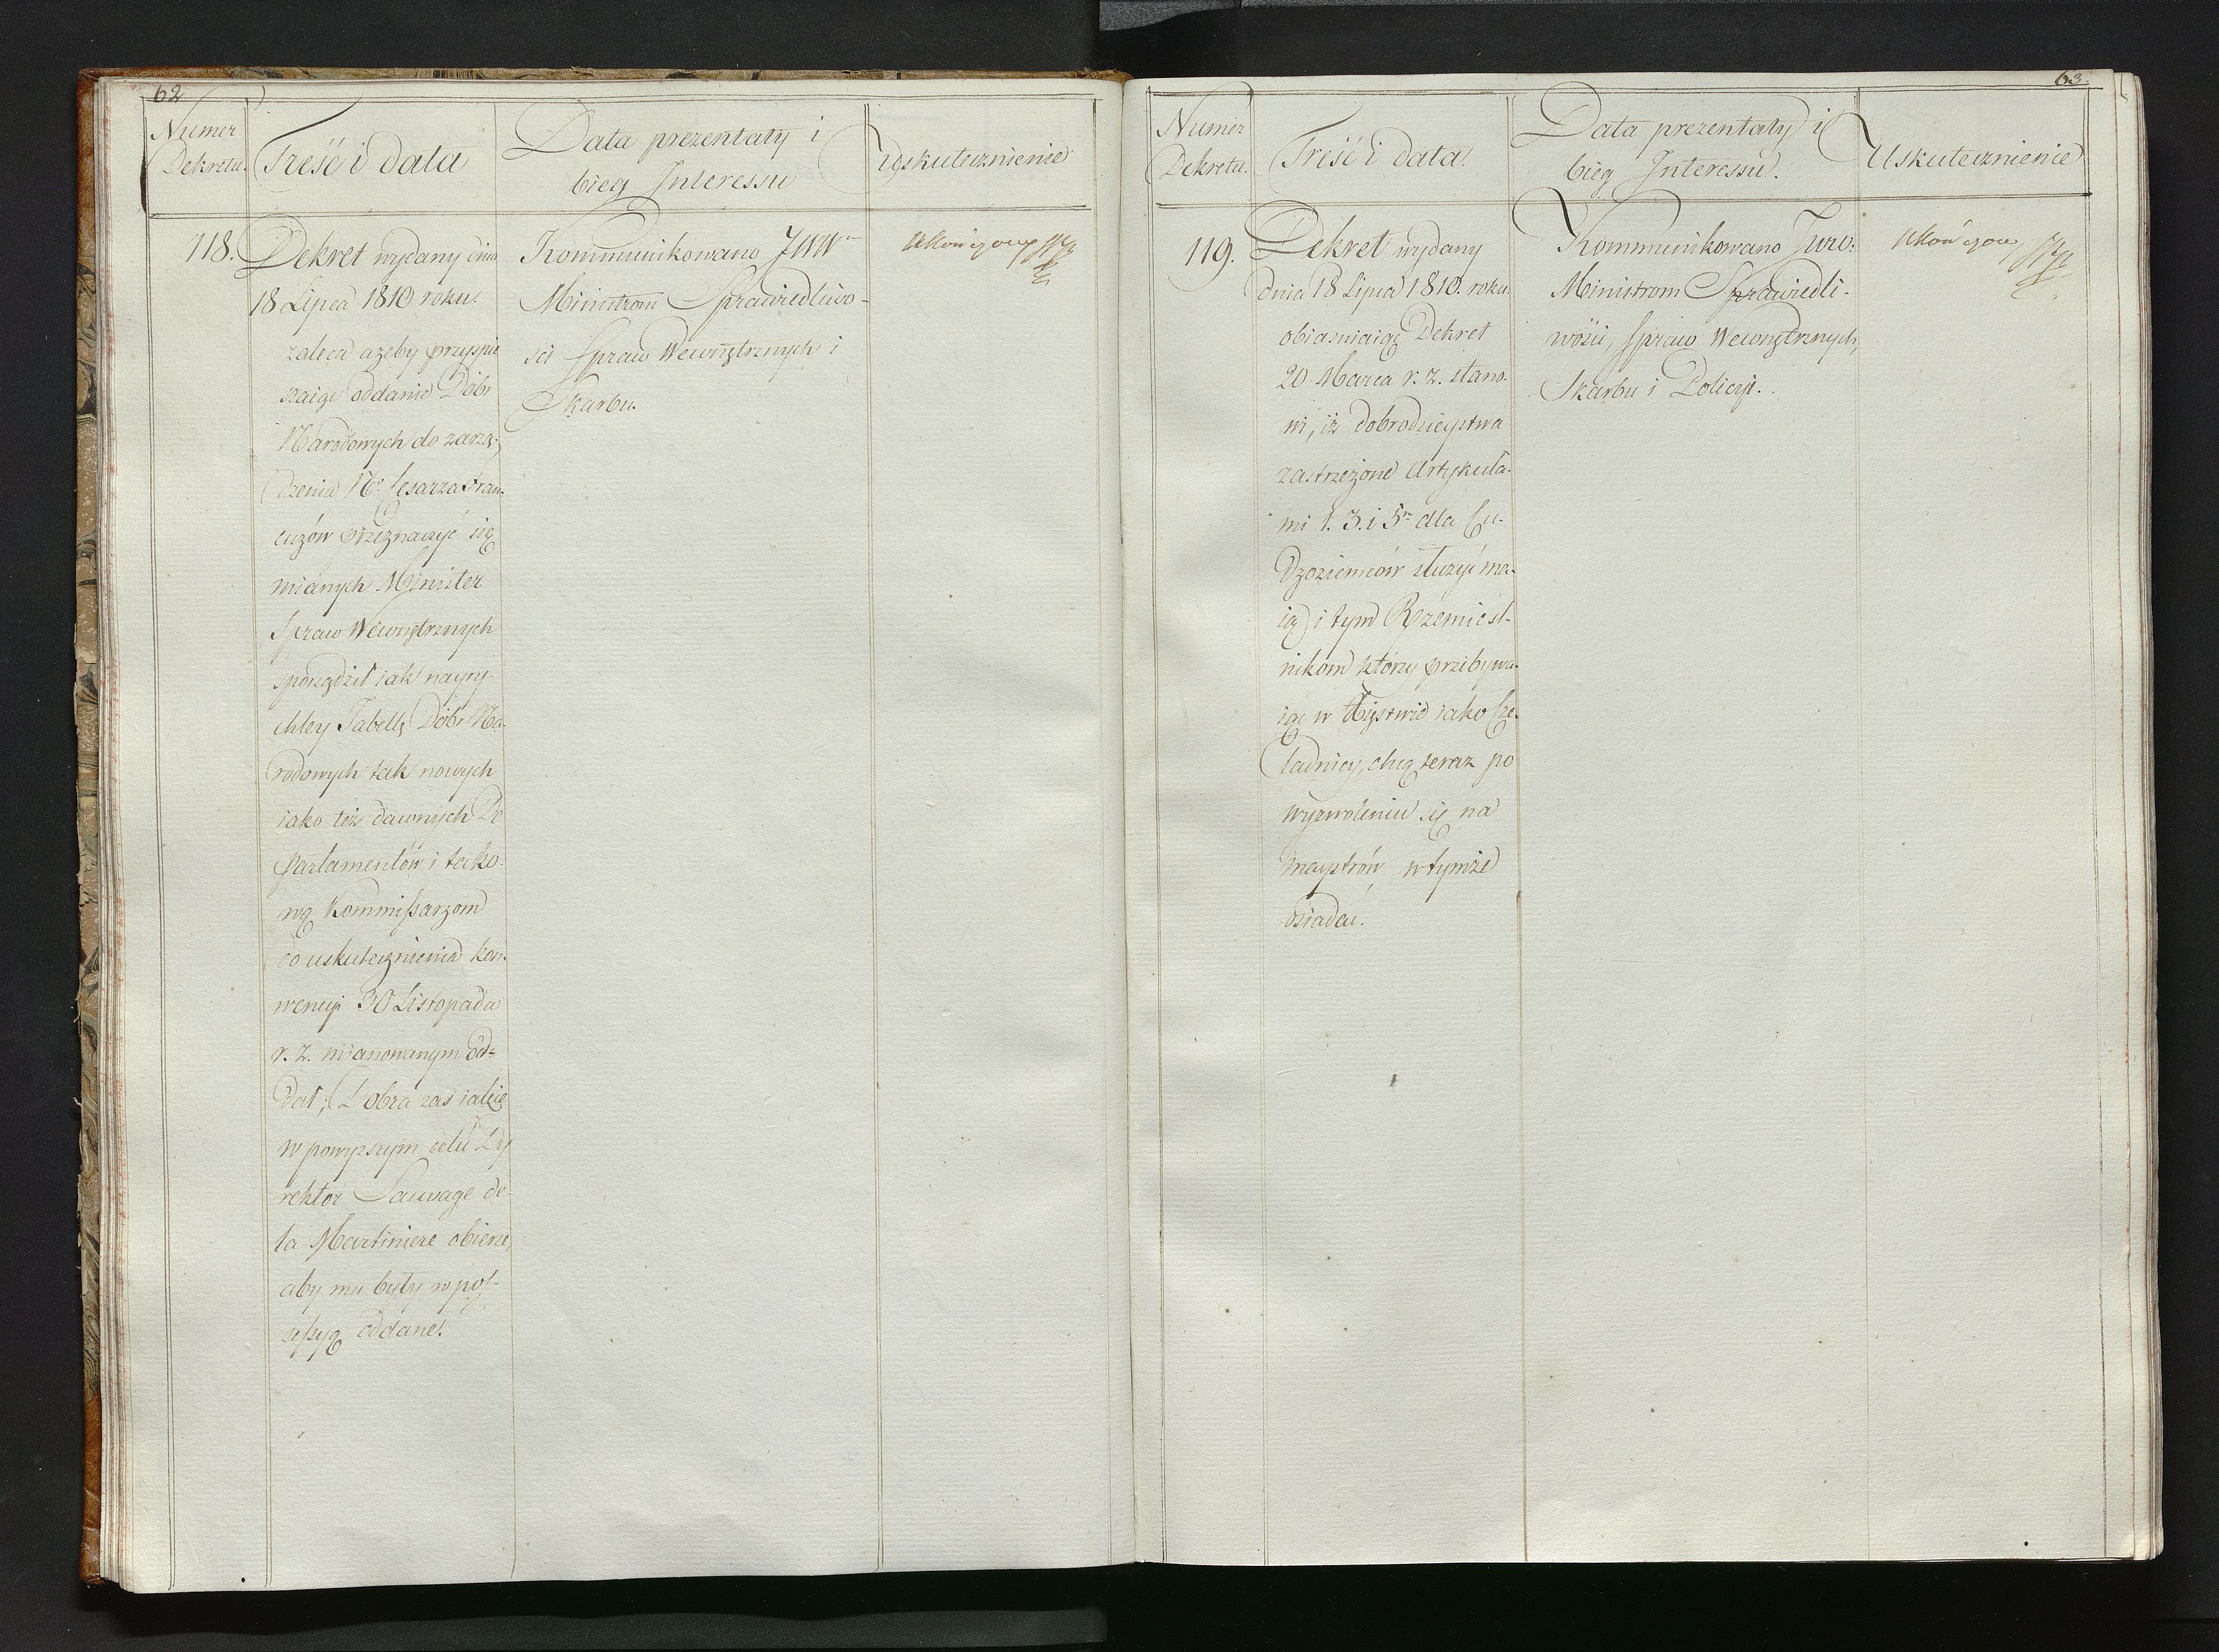 62
Numer Dekretu.
Treść i data
Data prezentaty i bieg Interessu
Uskutecznienie
118.
Dekret wydany dnia
18 Lipca 1810 roku.
zaleca ażeby przyspie
szaiąc oddanie Dóbr
Narodowych do zarzą-
dzenia No. Cesarza Fran-
cuzów przeznaczyć się
mianych Minister
Spraw Wewnętrznych
sporządził iak nayry-
chley Tabellę Dóbr Na-
rodowych tak nowych
iako też dawnych De
partamentów i tako-
wą Kommissarzom
do uskutecznienia kon-
wencyi 30 Listopada
r. z. mianowanym od-
dał; Dobra zaś iakie
w powyższym celu Dy
rektor Sauvage de-
la Martiniere obierze,
aby mu były w pos-
sessyą oddane.
Kommunikowano JWW
Ministrom Sprawiedliwo-
ści Spraw Wewnętrznych i
Skarbu.
Ukończone
63.
Numer Dekretu.
Treść i data.
Data prezentaty i bieg Interessu.
Uskutecznienie
119.
Dekret wydany
dnia 18 Lipca 1810. roku
obiasniaiąc Dekret
20 Marca r. z. stano-
wi, iż dobrodzieystwa
zastrzeżone Artykuła-
mi 1. 3. i 5m dla Cu-
dzoziemców służyć ma-
ią i tym Rzemieśl-
nikom którzy przebywa-
iąc w Xięstwie iako Cze-
ladnicy, chcą teraz po
wyzwoleniu się na
maystrów w tymże
osiadać.
Kommunikowano JWW.
Ministrom Sprawiedli-
wości, Spraw Wewnętrznych,
Skarbu i Policyi.
Ukończone